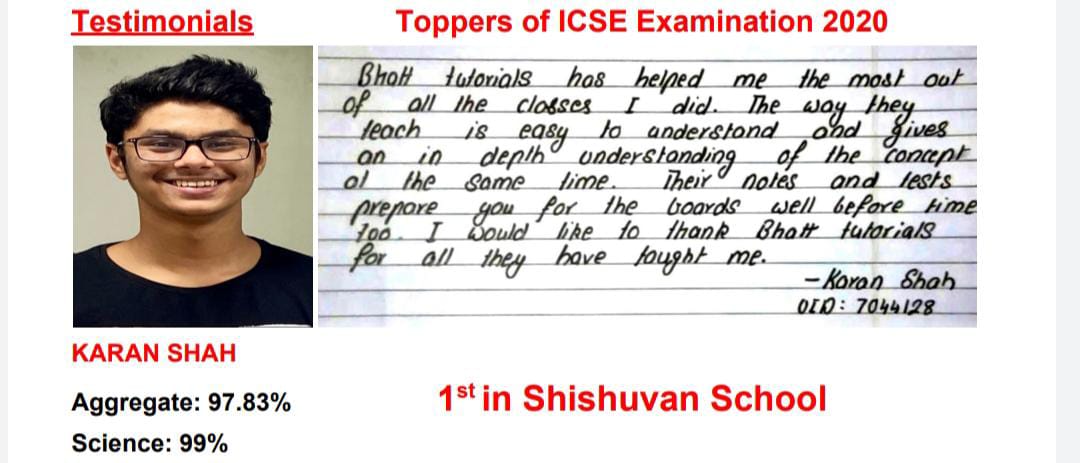 Testimonials
Toppers of ICSE Examination 2020
Bhatt tutorials has helped me the most out
of all the classes I did. The way they
teach is easy to understand and gives
an in depth understanding of the concept
at the same time. Their notes and tests
prepare you for the boards well before time
too. I would like to thank Bhatt tutorials
for all they have taught me.
-Karan Shah
OID: 7044128
KARAN SHAH
Aggregate: 97.83%
1st in Shishuvan School
Science: 99%